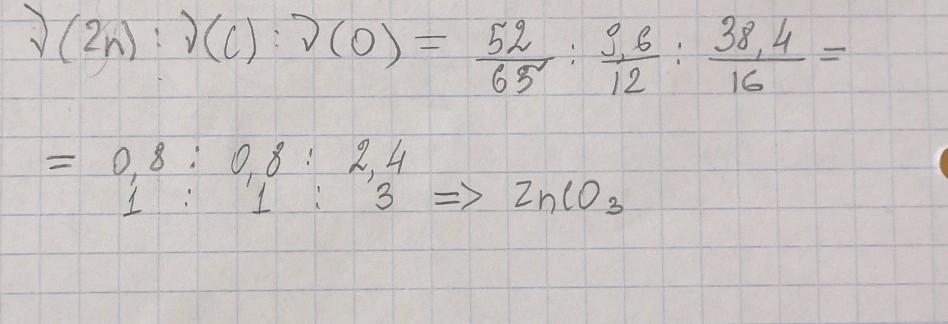 ν(Zn) : ν(C) : ν(O) = 52/65 : 9,6/12 : 38,4/16 =
= 0,8 : 0,8 : 2,4
1 : 1 : 3 => ZnCO₃